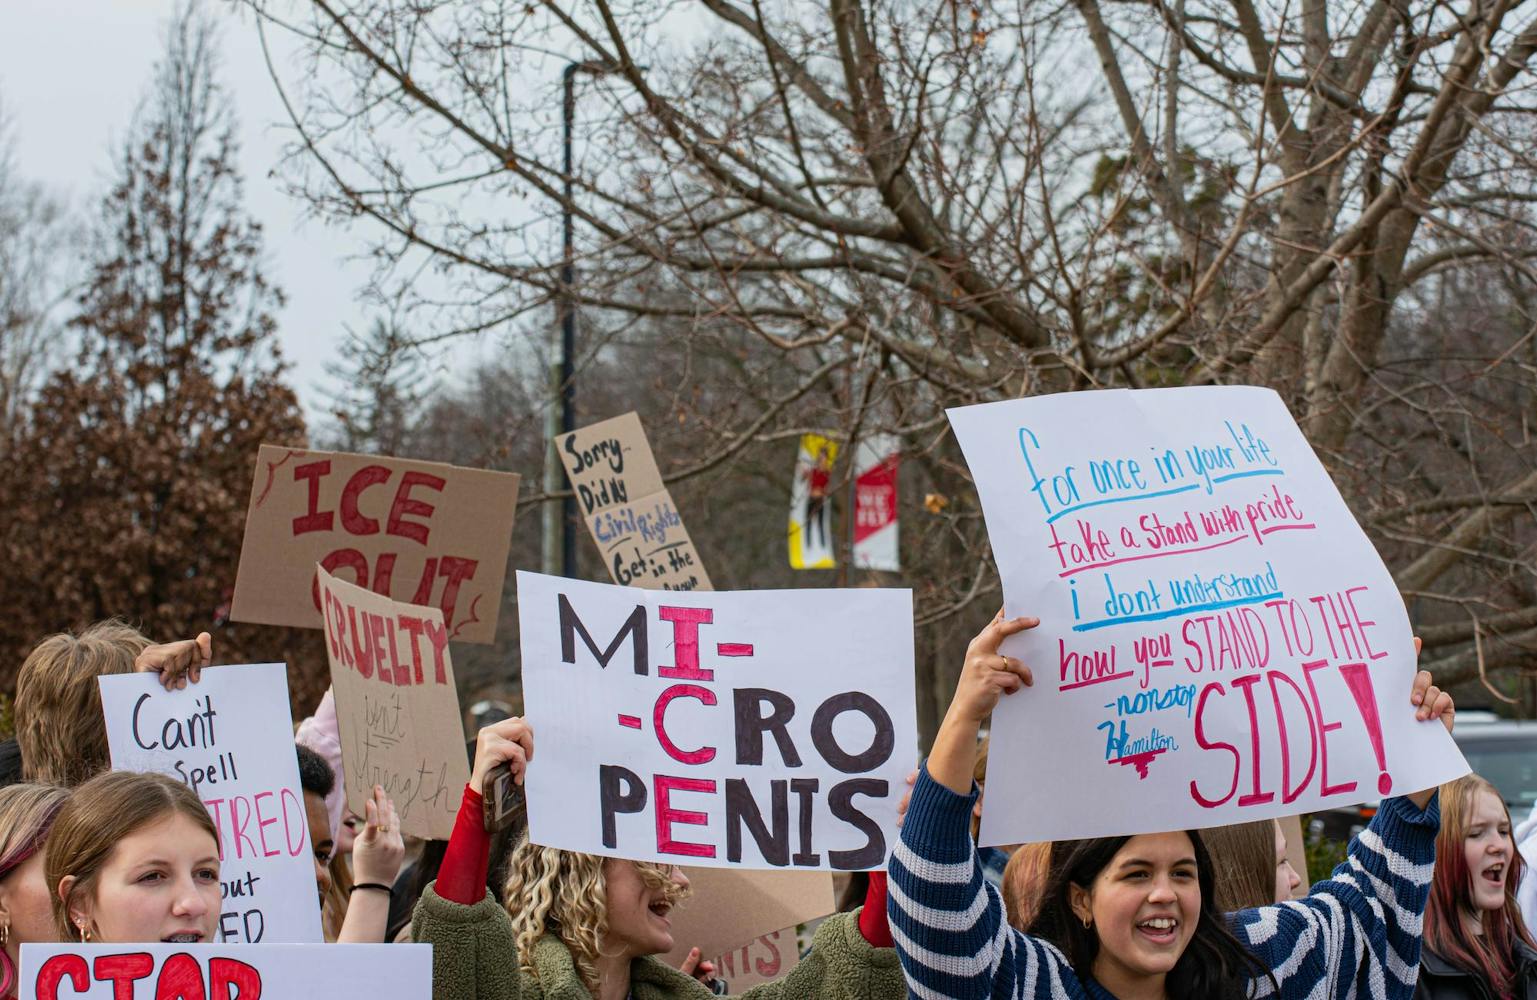 ICE
OUT
CRUELTY
isn't
strength
Sorry
Did My
Civil Rights
Get in the
Can't
spell
TRED
out
ED
STOP
MI-
-CRO
PENIS
for once in your life
take a stand with pride
i dont understand
how you STAND TO THE
SIDE!
-nonstop
Hamilton
WE
NTS